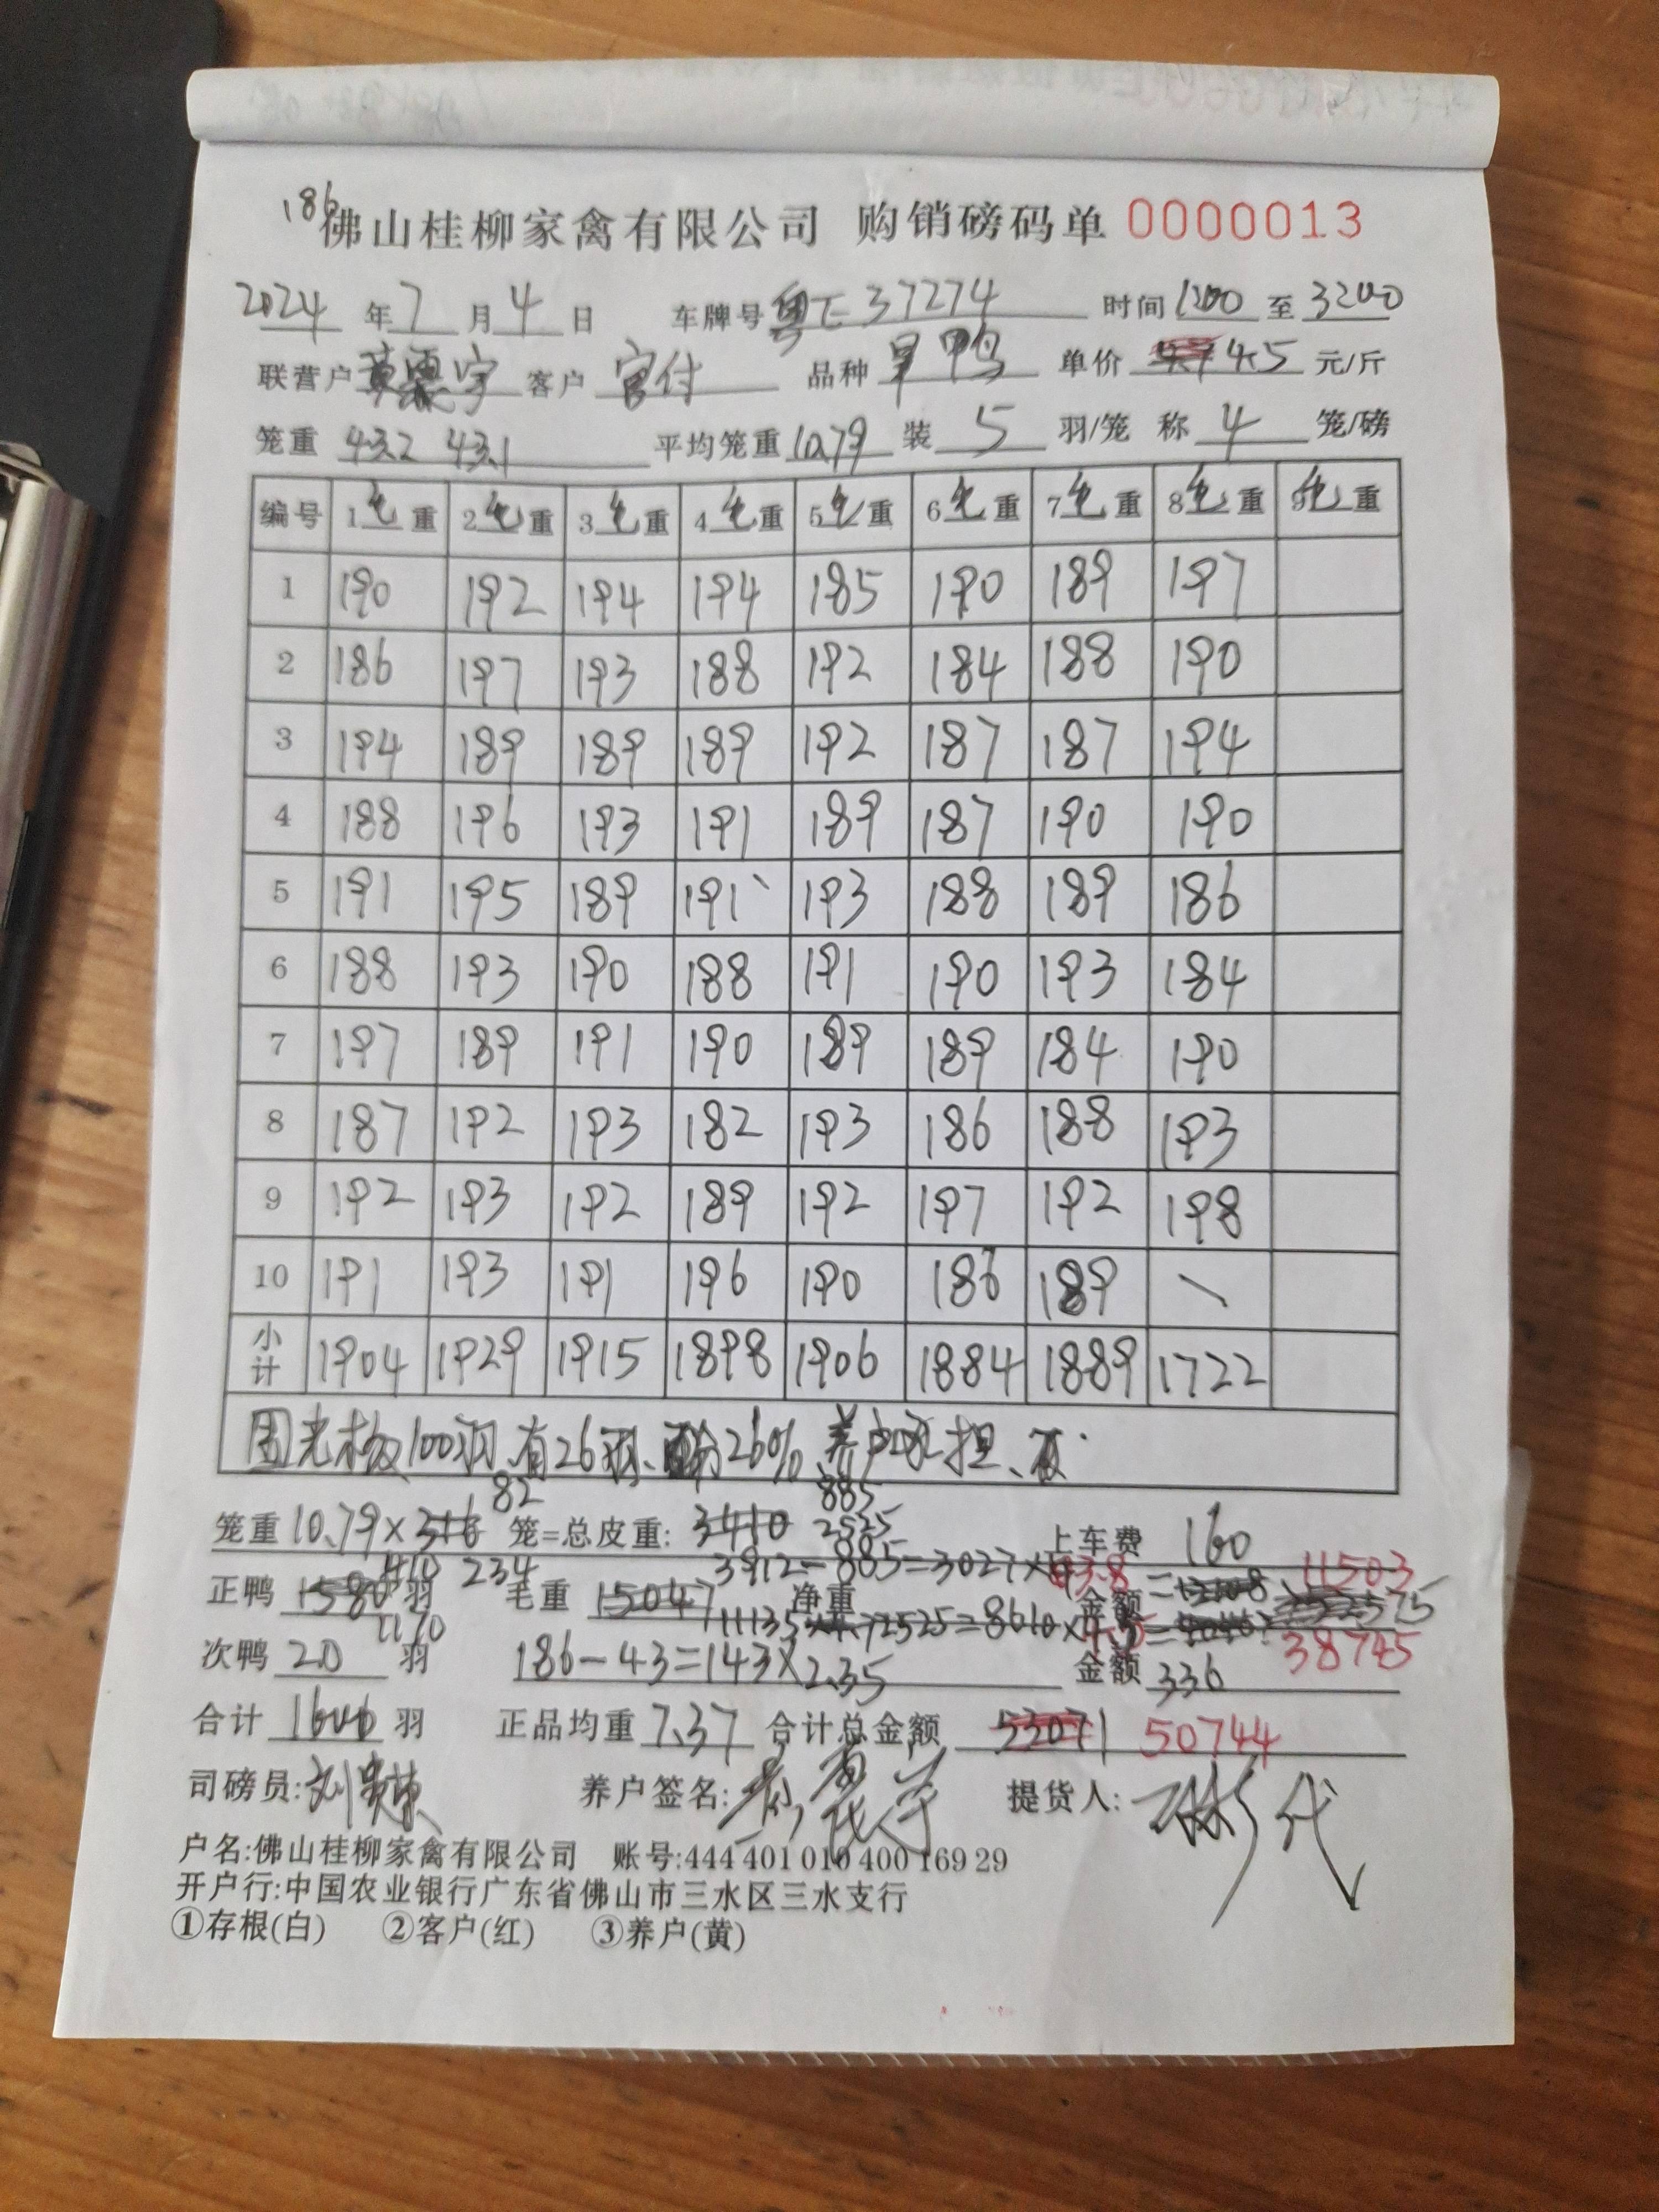 186
佛山桂柳家禽有限公司 购销磅码单 0000013
2024 年 7 月 4 日 车牌号 粤E 37274 时间 1200 至 3200
联营户 黄震宇 客户 官付 品种 旱鸭 单价 4.5 元/斤
笼重 43.2 43.1 平均笼重 10.79 装 5 羽/笼 称 4 笼/磅
编号 1 重 2 重 3 重 4 重 5 重 6 重 7 重 8 重 9 重
1 190 192 194 194 185 190 189 197
2 186 197 193 188 192 184 188 190
3 194 189 189 189 192 187 187 194
4 188 196 193 191 189 187 190 190
5 191 195 189 191 193 188 189 186
6 188 193 190 188 191 190 193 184
7 197 189 191 190 189 189 184 190
8 187 192 193 182 193 186 188 193
9 192 193 192 189 192 197 192 198
10 191 193 191 196 190 186 189 \
小计 1904 1929 1915 1898 1906 1884 1889 1722
100羽、有26羽、26% 养户承担、
82 885
笼重 10.79×316 笼=总皮重: 3410 2525 上车费 160
410 234 3912-885=3027×3.8= 11503
正鸭 1580 羽 毛重 15047 净重 金额
1170 11135-2525=8610×4.5= 38745
次鸭 20 羽 186-43=143×2.35 金额 336
合计 1600 羽 正品均重 7.37 合计总金额 53071 50744
司磅员: 养户签名: 提货人:
户名:佛山桂柳家禽有限公司 账号:444 401 010 400 169 29
开户行:中国农业银行广东省佛山市三水区三水支行
①存根(白) ②客户(红) ③养户(黄)